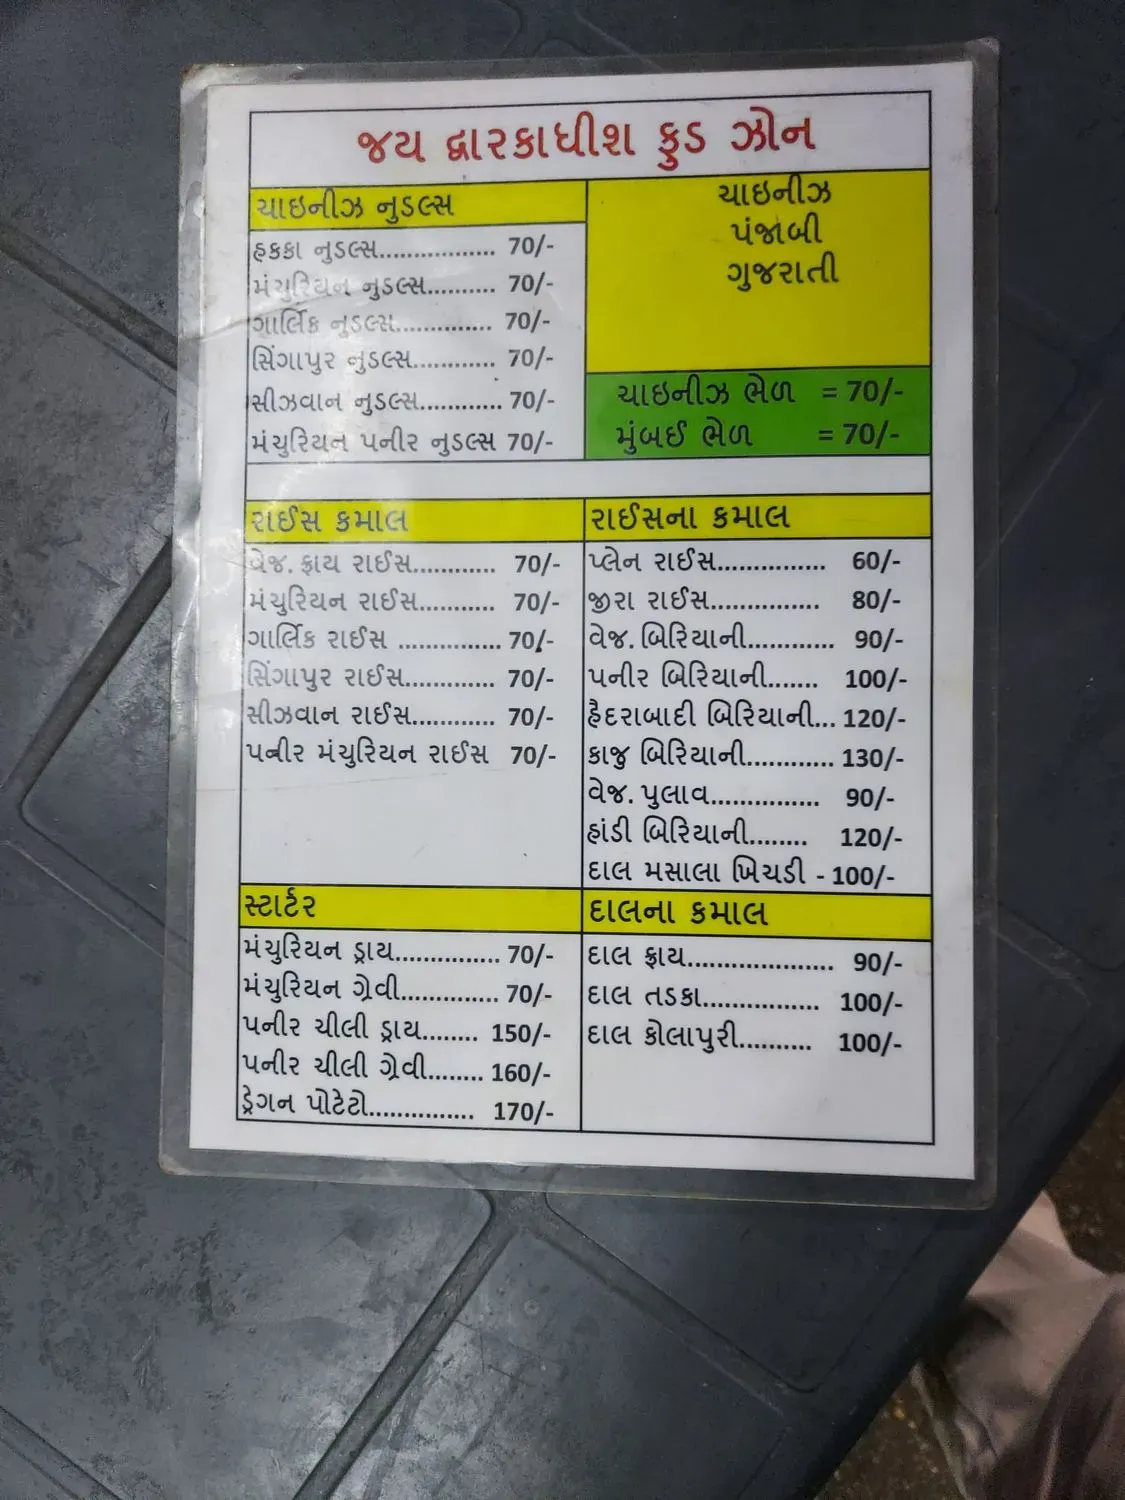 જય દ્વારકાધીશ ફુડ ઝોન
ચાઇનીઝ નુડલ્સ
હકકા નુડલ્સ................. 70/-
મંચુરિયન નુડલ્સ.......... 70/-
ગાર્લિક નુડલ્સ.............. 70/-
સિંગાપુર નુડલ્સ............ 70/-
સીઝવાન નુડલ્સ............ 70/-
મંચુરિયન પનીર નુડલ્સ 70/-
ચાઇનીઝ
પંજાબી
ગુજરાતી
ચાઇનીઝ ભેળ = 70/-
મુંબઈ ભેળ = 70/-
રાઈસ કમાલ
વેજ. ફ્રાય રાઈસ............ 70/-
મંચુરિયન રાઈસ........... 70/-
ગાર્લિક રાઈસ ............... 70/-
સિંગાપુર રાઈસ............. 70/-
સીઝવાન રાઈસ............ 70/-
પનીર મંચુરિયન રાઈસ 70/-
રાઈસના કમાલ
પ્લેન રાઈસ................ 60/-
જીરા રાઈસ................ 80/-
વેજ. બિરિયાની............. 90/-
પનીર બિરિયાની....... 100/-
હૈદરાબાદી બિરિયાની... 120/-
કાજુ બિરિયાની............ 130/-
વેજ. પુલાવ................ 90/-
હાંડી બિરિયાની........ 120/-
દાલ મસાલા ખિચડી - 100/-
સ્ટાર્ટર
મંચુરિયન ડ્રાય................ 70/-
મંચુરિયન ગ્રેવી............... 70/-
પનીર ચીલી ડ્રાય........ 150/-
પનીર ચીલી ગ્રેવી........ 160/-
ડ્રેગન પોટેટો............... 170/-
દાલના કમાલ
દાલ ફ્રાય...................... 90/-
દાલ તડકા.................... 100/-
દાલ કોલાપુરી.......... 100/-